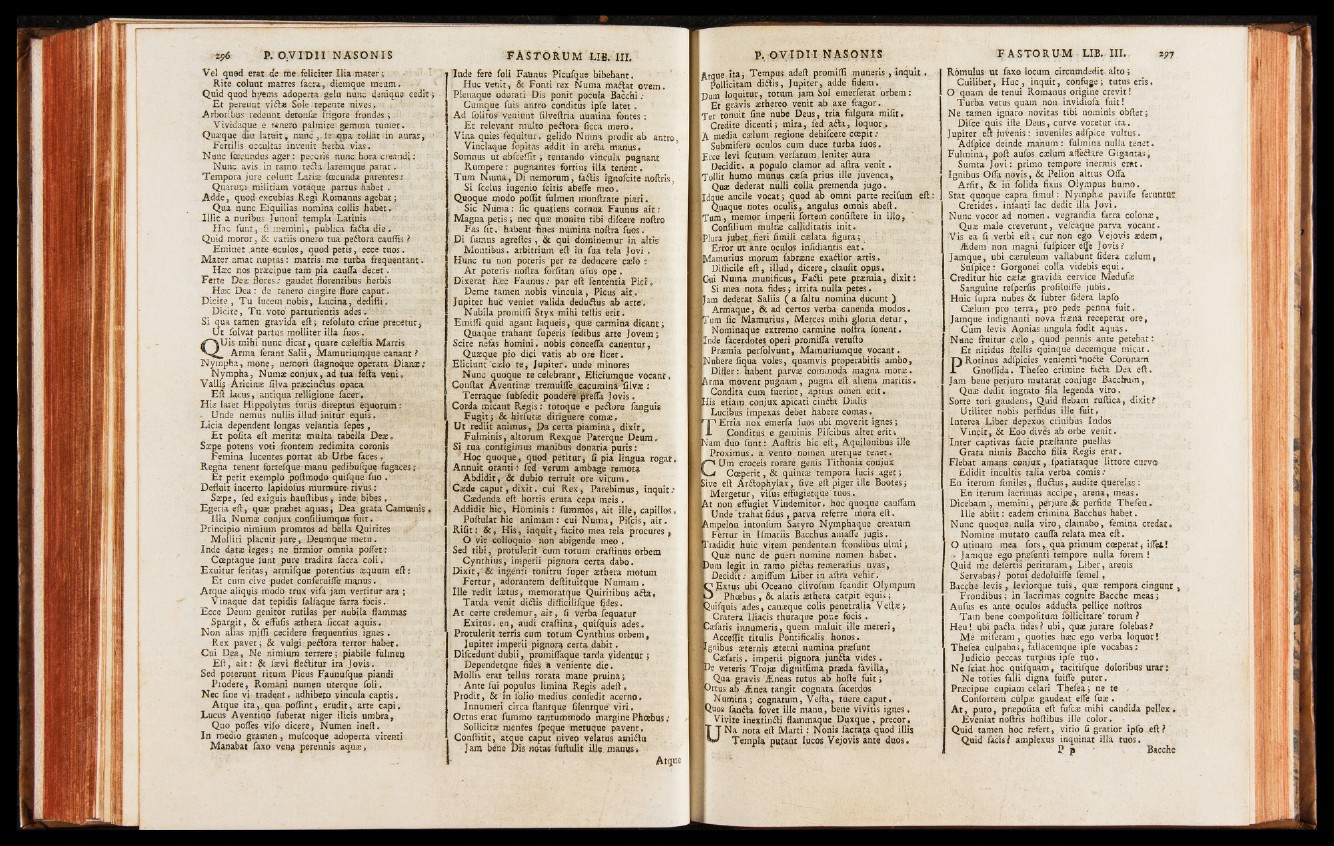 296 P. OVIDII NASONIS
Vel quod erat de me feliciter Ilia mater;
Rite colunt matres ſacra, diemque meum.
Quid quod hyems adoperta gelu nunc denique cedit;
Et pereunt victæ Sole tepente nives.
Arboribus redeunt detonſæ frigore frondes;
Vividaque e tenero palmite gemma tumet.
Quæque diu latuit, nunc, ſe qua tollat in auras,
Fertilis occultas invenit herba vias.
Nunc fœcundus ager: pecoris nunc hora creandi:
Nunc avis in ramo tecta laremque parat.
Tempora jure colunt Latiæ fœcunda parentes:
Quarum militiam votaque partus habet.
Adde, quod excubias Regi Romanus agebat;
Qua nunc Eſquilias nomina collis habet.
Illic a nuribus Junoni templa Latinis
Hac ſunt, ſi memini, publica facta die.
Quid moror, & variis onero tua pectora cauſſis?
Eminet ante oculos, quod petis, ecce tuos.
Mater amat nuptas: matris me turba frequentant.
Hæc nos præcipue tam pia cauſſa decet.
Ferte Deæ flores: gaudet florentibus herbis
Hæc Dea: de tenero cingite flore caput.
Dicite, Tu lucem nobis, Lucina, dediſti.
Dicite, Tu voto parturientis ades.
Si qua tamen gravida eſt; reſoluto crine precetur,
Ut ſolvat partus molliter illa ſuos.
QUis mihi nunc dicat, quare cæleſtia Martis
Arma ferant Salii, Mamuriumque canant?
Nympha, mone, nemori ſtagnoque operata Dianæ:
Nympha, Numæ conjux, ad tua feſta veni.
Vallis Aricinæ ſilva præcinctus opaca
Eſt lacus, antiqua relligione ſacer.
Hic latet Hippolytus furiis direptus equorum:
Unde nemus nullis illud initur equis.
Licia dependent longas velantia ſepes,
Et poſita eſt meritæ multa tabella Deæ.
Sæpe potens voti frontem redimita coronis
Femina lucentes portat ab Urbe faces.
Regna tenent forteſque manu pedibuſque fugaces;
Et perit exemplo poſtmodo quiſque ſuo.
Defluit incerto lapidoſus murmure rivus:
Sæpe, ſed exiguis hauſtibus, inde bibes.
Egeria eſt, quæ præbet aquas, Dea grata Camœnis.
Illa Numæ conjux conſiliumque fuit.
Principio nimium promtos ad bella Quirites
Molliri placuit jure, Deumque metu.
Inde datæ leges; ne firmior omnia poſſet:
Cœptaque ſunt pure tradita ſacra coli.
Exuitur feritas, armiſque potentius æquum eſt:
Et cum cive pudet conſeruiſſe manus.
Atque aliquis modo trux viſa jam vertitur ara;
Vinaque dat tepidis ſalſaque farra focis.
Ecce Deum genitor rutilas per nubila flammas
Spargit, & effuſis æthera ſiccat aquis.
Non alias miſſi cecidere frequentius ignes.
Rex pavet; & vulgi pectora terror habet.
Cui Dea, Ne nimium terrere; piabile fulmen
Eſt, ait: & ſævi flectitur ira Jovis.
Sed poterunt ritum Picus Faunuſque piandi
Prodere, Romani numen uterque ſoli.
Nec ſine vi tradent. adhibeto vincula captis.
Atque ita, qua poſſint, erudit, arte capi.
Lucus Aventino ſuberat niger ilicis umbra,
Quo poſſes viſo dicere, Numen ineſt.
In medio gramen, muſcoque adoperta virenti
Manabat ſaxo vena perennis aquæ,
FASTORUM LIB. III.
Inde fere ſoli Faunus Picuſque bibebant.
Huc venit, & Fonti rex Numa mactat ovem.
Plenaque odorati Dis ponit pocula Bacchi:
Cumque ſuis antro conditus ipſe latet.
Ad ſolitos veniunt ſilveſtria numina fontes:
Et relevant multo pectora ſicca mero.
Vina quies ſequitur. gelido Numa prodit ab antro,
Vinclaque ſopitas addit in arcta manus.
Somnus ut abſceſſit, tentando vincula pugnant
Rumpere: pugnantes fortius illa tenent.
Tum Numa, Di nemorum, factis ignoſcite noſtris,
Si ſcelus ingenio ſcitis abeſſe meo.
Quoque modo poſſit fulmen monſtrate piari.
Sic Numa: ſic quatiens cornua Faunus ait:
Magna petis; nec quæ monitu tibi diſcere noſtro
Fas ſit. habent fines numina noſtra ſuos.
Di ſumus agreſtes, & qui dominemur in altis
Montibus. arbitrium eſt in ſua tela Jovi.
Hunc tu non poteris per te deducere cælo:
At poteris noſtra forſitan uſus ope.
Dixerat hæc Faunus: par eſt ſententia Pici.
Deme tamen nobis vincula, Picus ait.
Jupiter huc veniet valida deductus ab arte.
Nubila promiſſi Styx mihi teſtis erit.
Emiſſi quid agant laqueis, quæ carmina dicant;
Quaque trahant ſuperis ſedibus arte Jovem;
Scire nefas homini. nobis conceſſa canentur,
Quæque pio dici vatis ab ore licet.
Eliciunt cælo te, Jupiter. unde minores
Nunc quoque te celebrant, Eliciumque vocant.
Conſtat Aventinæ tremuiſſe cacumina ſilvæ:
Terraque ſubſedit pondere preſſa Jovis.
Corda micant Regis: totoque e pectore ſanguis
Fugit; & hirſutæ diriguere comæ.
Ut rediit animus, Da certa piamina, dixit,
Fulminis, altorum Rexque Paterque Deum.
Si tua contigimus manibus donaria puris:
Hoc quoque, quod petitur, ſi pia lingua rogat.
Annuit oranti: ſed verum ambage remota
Abdidit, & dubio terruit ore virum.
Cæde caput, dixit. cui Rex, Parebimus, inquit:
Cædenda eſt hortis eruta cepa meis.
Addidit hic, Hominis: ſummos, ait ille, capillos.
Poſtulat hic animam: cui Numa, Piſcis, ait.
Riſit: &, His, inquit, facito mea tela procures,
O vir colloquio non abigende meo.
Sed tibi, protulerit cum totum craſtinus orbem
Cynthius, imperii pignora certa dabo.
Dixit, & ingenti tonitru ſuper æthera motum
Fertur, adorantem deſtituitque Numam.
Ille redit lætus, memoratque Quiritibus acta.
Tarda venit dictis difficiliſque fides.
At certe credemur, ait, ſi verba ſequatur
Exitus. en, audi craſtina, quiſquis ades.
Protulerit terris cum totum Cynthius orbem,
Jupiter imperii pignora certa dabit.
Diſcedunt dubii, promiſſaque tarda videntur;
Dependetque fides a veniente die.
Mollis erat tellus rorata mane pruina;
Ante ſui populus limina Regis adeſt.
Prodit, & in ſolio medius conſedit acerno.
Innumeri circa ſtantque ſilentque viri.
Ortus erat ſummo tantummodo margine Phœbus:
Sollicitæ mentes ſpeque metuque pavent.
Conſtitit, atque caput niveo velatus amictu
Jam bene Dis notas ſuſtulit ille manus.
Atque
P. OVIDII NASONIS
Atque ita, Tempus adeſt promiſſi muneris, inquit.
Pollicitam dictis, Jupiter, adde fidem.
Dum loquitur, totum jam Sol emerſerat orbem:
Et gravis æthereo venit ab axe fragor.
Ter tonuit ſine nube Deus, tria fulgura miſit.
Credite dicenti; mira, ſed acta, loquor.
A media cælum regione dehiſcere cœpit:
Submiſere oculos cum duce turba ſuos.
Ecce levi ſcutum verſatum leniter aura
Decidit. a populo clamor ad aſtra venit.
Tollit humo munus cæſa prius ille juvenca,
Quæ dederat nulli colla premenda jugo.
Idque ancile vocat; quod ab omni parte reciſum eſt:
Quaque notes oculis, angulus omnis abeſt.
Tum, memor imperii ſortem conſiſtere in illo,
Conſilium multæ calliditatis init.
Plura jubet fieri ſimili cælata figura;
Error ut ante oculos inſidiantis eat.
Mamurius morum fabræne exactior artis,
Difficile eſt, illud, dicere, clauſit opus.
Cui Numa munificus, Facti pete præmia, dixit:
Si mea nota fides; irrita nulla petes.
Jam dederat Saliis (a ſaltu nomina ducunt)
Armaque, & ad certos verba canenda modos.
Tum ſic Mamurius, Merces mihi gloria detur,
Nominaque extremo carmine noſtra ſonent.
Inde ſacerdotes operi promiſſa vetuſto
Præmia perſolvunt, Mamuriumque vocant.
Nubere ſiqua voles, quamvis properabitis ambo,
Differ: habent parvæ commoda magna moræ.
Arma movent pugnam, pugna eſt aliena maritis.
Condita cum fuerint, aptius omen erit.
His etiam conjux apicati cincta Dialis
Lucibus impexas debet habere comas.
TErtia nox emerſa ſuos ubi moverit ignes;
Conditus e geminis Piſcibus alter erit.
Nam duo ſunt: Auſtris hic eſt, Aquilonibus ille
Proximus. a vento nomen uterque tenet.
CUm croceis rorare genis Tithonia conjux
Cœperit, & quintæ tempora lucis aget;
Sive eſt Arctophylax, ſive eſt piger ille Bootes;
Mergetur, viſus effugietque tuos.
At non effugiet Vindemitor. hoc quoque cauſſam
Unde trahat ſidus, parva referre mora eſt.
Ampelon intonſum Satyro Nymphaque creatum
Fertur in Iſmariis Bacchus amaſſe jugis.
Tradidit huic vitem pendentem frondibus ulmi;
Quæ nunc de pueri nomine nomen habet.
Dum legit in ramo pictas temerarius uvas,
Decidit: amiſſum Liber in aſtra vehit.
SExtus ubi Oceano clivoſum ſcandit Olympum
Phœbus, & alatis æthera carpit equis;
Quiſquis ades, canæque colis penetralia Veſtæ;
Cratera Iliacis thuraque pone focis.
Cæſaris innumeris, quem maluit ille mereri,
Acceſſit titulis Pontificalis honos.
Ignibus æternis æterni numina præſunt
Cæſaris. imperii pignora juncta vides.
De veteris Trojæ digniſſima præda favilla,
Qua gravis Æneas tutus ab hoſte fuit;
Ortus ab Ænea tangit cognata ſacerdos
Numina; cognatum, Veſta, tuere caput.
Quos ſancta fovet ille manu, bene vivitis ignes.
Vivite inextincti flammaque Duxque, precor.
UNa nota eſt Marti: Nonis ſacrata quod illis
Templa putant lucos Vejovis ante duos.
FASTORUM LIB. III. 297
Romulus ut ſaxo locum circumdedit alto;
Cuilibet, Huc, inquit, confuge; tutus eris.
O quam de tenui Romanus origine crevit!
Turba vetus quam non invidioſa fuit!
Ne tamen ignaro novitas tibi nominis obſtet;
Diſce quis iſte Deus, curve vocetur ita.
Jupiter eſt juvenis: juveniles adſpice vultus.
Adſpice deinde manum: fulmina nulla tenet.
Fulmina, poſt auſos cælum affectare Gigantas,
Sumta Jovi: primo tempore inermis erat.
Ignibus Oſſa novis, & Pelion altius Oſſa
Arſit, & in ſolida fixus Olympus humo.
Stat quoque capra ſimul: Nymphæ paviſſe feruntur
Cretides. infanti lac dedit illa Jovi.
Nunc vocor ad nomen. vegrandia farra colonæ,
Quæ male creverunt, veſcaque parva vocant.
Vis ea ſi verbi eſt; cur non ego Vejovis ædem,
Ædem non magni ſuſpicer eſſe Jovis?
Jamque, ubi cæruleum variabunt ſidera cælum,
Suſpice: Gorgonei colla videbis equi.
Creditur hic cæſæ gravida cervice Meduſæ
Sanguine reſperſis proſiluiſſe jubis.
Huic ſupra nubes & ſubter ſidera lapſo
Cælum pro terra, pro pede penna fuit.
Jamque indignanti nova fræna receperat ore,
Cum levis Aonias ungula fodit aquas.
Nunc fruitur cælo, quod pennis ante petebat:
Et nitidus ſtellis quinque decemque micat.
PRotinus adſpicies venienti nocte Coronam
Gnoſſida. Theſeo crimine facta Dea eſt.
Jam bene perjuro mutarat conjuge Bacchum,
Quæ dedit ingrato fila legenda viro.
Sorte tori gaudens, Quid flebam ruſtica, dixit?
Utiliter nobis perfidus ille fuit.
Interea Liber depexos crinibus Indos
Vincit, & Eoo dives ab orbe venit.
Inter captivas facie præſtante puellas
Grata nimis Baccho filia Regis erat.
Flebat amans conjux, ſpatiataque littore curvo
Edidit incultis talia verba comis:
En iterum ſimiles, fluctus, audite querelas:
En iterum lacrimas accipe, arena, meas.
Dicebam, memini, perjure & perfide Theſeu.
Ille abiit: eadem crimina Bacchus habet.
Nunc quoque nulla viro, clamabo, femina credat.
Nomine mutato cauſſa relata mea eſt.
O utinam mea ſors, qua primum cœperat, iſſet!
Jamque ego præſenti tempore nulla forem!
Quid me deſertis perituram, Liber, arenis
Servabas? potui dedoluiſſe ſemel,
Bacche levis, levionque tuis, quæ tempora cingunt,
Frondibus: in lacrimas cognite Bacche meas;
Auſus es ante oculos adducta pellice noſtros
Tam bene compoſitum ſollicitare torum?
Heu! ubi pacta fides? ubi, quæ jurare ſolebas?
Me miſeram, quoties hæc ego verba loquor!
Theſea culpabas, fallacemque ipſe vocabas:
Judicio peccas turpius ipſe tuo.
Ne ſciat hoc quiſquam, tacitiſque doloribus urar:
Ne toties falli digna fuiſſe puter.
Præcipue cupiam celari Theſea; ne te
Conſortem culpæ gaudeat eſſe ſuæ.
At, puto, præpoſita eſt fuſcæ mihi candida pellex.
Eveniat noſtris hoſtibus ille color.
Quid tamen hoc refert, vitio ſi gratior ipſo eſt?
Quid facis? amplexus inquinat illa tuos.
P p Bacche